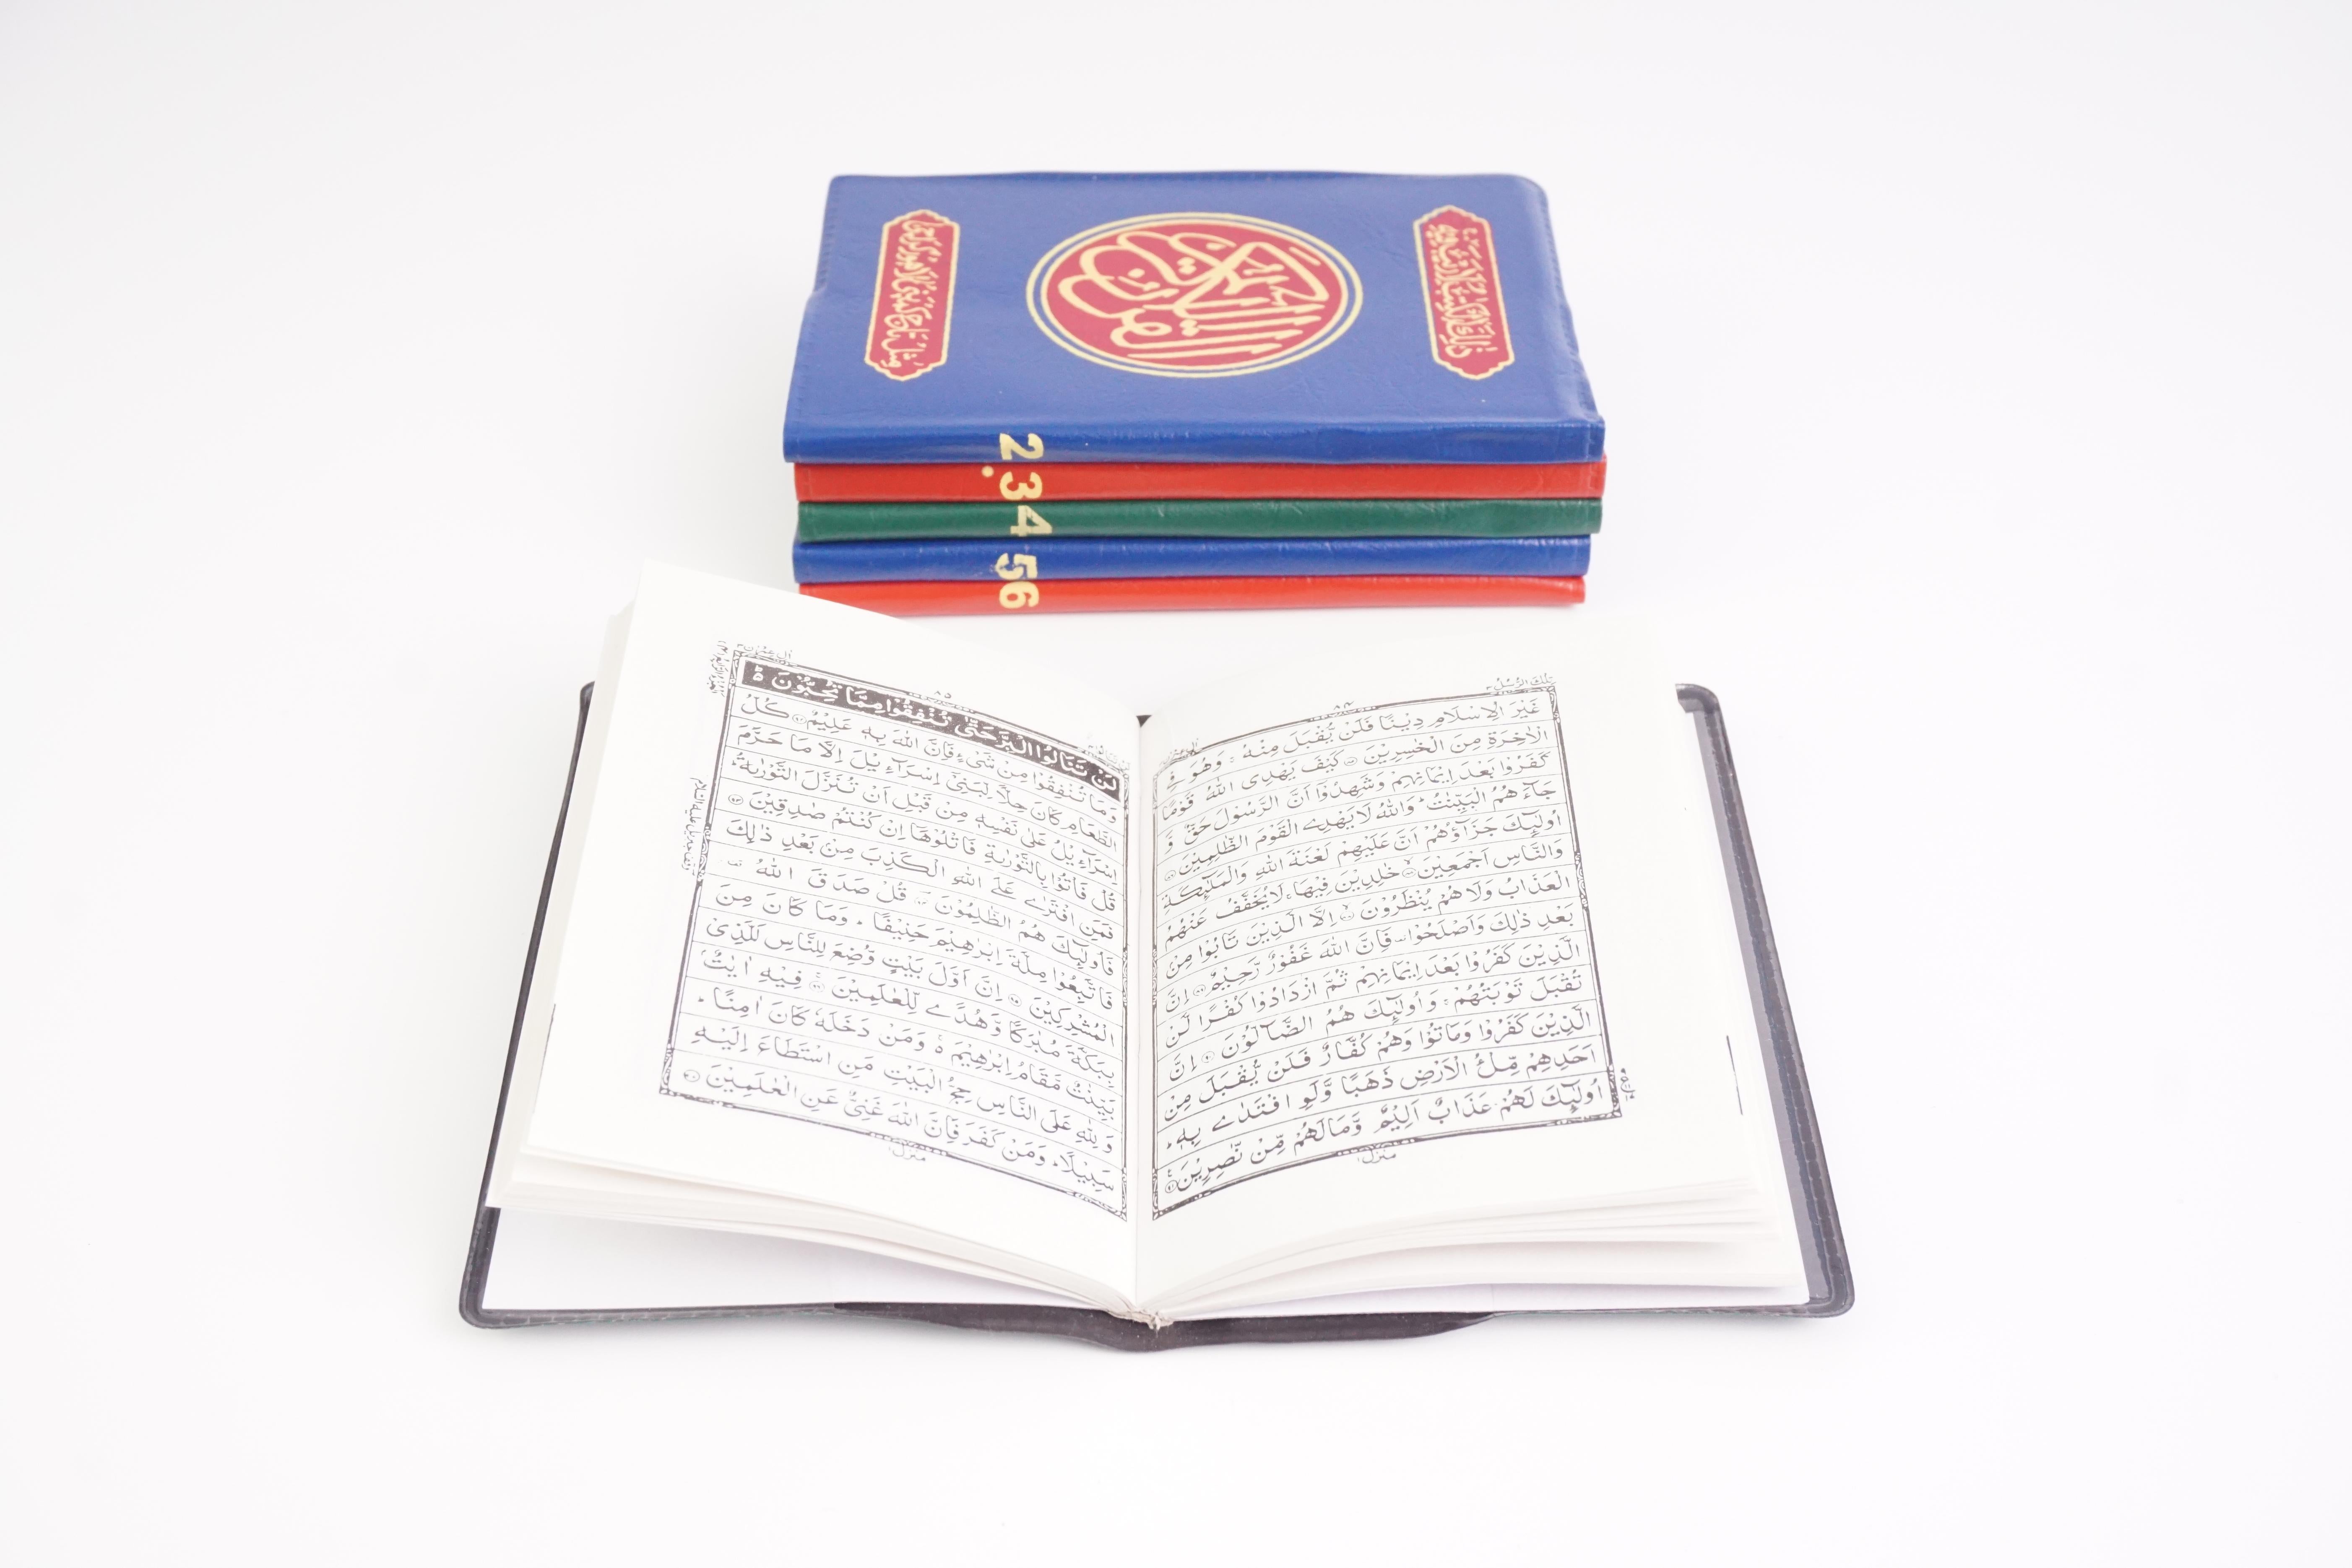 القرآن الكريم
2.
3
4
5
6
تلك الرسل ٣
٨٤
غَيْرَ الْاِسْلَامِ دِيْنًا فَلَنْ يُّقْبَلَ مِنْهُ ۚ وَهُوَ فِي
الْاٰخِرَةِ مِنَ الْخٰسِرِيْنَ ﴿٨٥﴾ كَيْفَ يَهْدِى اللّٰهُ قَوْمًا
كَفَرُوْا بَعْدَ اِيْمَانِهِمْ وَشَهِدُوْٓا اَنَّ الرَّسُوْلَ حَقٌّ وَّ
جَآءَهُمُ الْبَيِّنٰتُ ؕ وَاللّٰهُ لَا يَهْدِى الْقَوْمَ الظّٰلِمِيْنَ ﴿٨٦﴾
اُولٰٓئِكَ جَزَآؤُهُمْ اَنَّ عَلَيْهِمْ لَعْنَةَ اللّٰهِ وَالْمَلٰٓئِكَةِ
وَالنَّاسِ اَجْمَعِيْنَ ﴿٨٧﴾ خٰلِدِيْنَ فِيْهَا ۚ لَا يُخَفَّفُ عَنْهُمُ
الْعَذَابُ وَلَا هُمْ يُنْظَرُوْنَ ﴿٨٨﴾ اِلَّا الَّذِيْنَ تَابُوْا مِنْۢ
بَعْدِ ذٰلِكَ وَاَصْلَحُوْا ۫ فَاِنَّ اللّٰهَ غَفُوْرٌ رَّحِيْمٌ ﴿٨٩﴾ اِنَّ
الَّذِيْنَ كَفَرُوْا بَعْدَ اِيْمَانِهِمْ ثُمَّ ازْدَادُوْا كُفْرًا لَّنْ
تُقْبَلَ تَوْبَتُهُمْ ۚ وَاُولٰٓئِكَ هُمُ الضَّآلُّوْنَ ﴿٩٠﴾ اِنَّ
الَّذِيْنَ كَفَرُوْا وَمَاتُوْا وَهُمْ كُفَّارٌ فَلَنْ يُّقْبَلَ مِنْ
اَحَدِهِمْ مِّلْءُ الْاَرْضِ ذَهَبًا وَّلَوِ افْتَدٰى بِهٖ ؕ
اُولٰٓئِكَ لَهُمْ عَذَابٌ اَلِيْمٌ وَّمَا لَهُمْ مِّنْ نّٰصِرِيْنَ ﴿٩١﴾
منزل ١
اٰل عمرٰن ٣
٨٥
لَنْ تَنَالُوا الْبِرَّ حَتّٰى تُنْفِقُوْا مِمَّا تُحِبُّوْنَ ؕ
وَمَا تُنْفِقُوْا مِنْ شَىْءٍ فَاِنَّ اللّٰهَ بِهٖ عَلِيْمٌ ﴿٩٢﴾ كُلُّ
الطَّعَامِ كَانَ حِلًّا لِّبَنِىْٓ اِسْرَآءِيْلَ اِلَّا مَا حَرَّمَ
اِسْرَآءِيْلُ عَلٰى نَفْسِهٖ مِنْ قَبْلِ اَنْ تُنَزَّلَ التَّوْرٰىةُ ؕ
قُلْ فَاْتُوْا بِالتَّوْرٰىةِ فَاتْلُوْهَآ اِنْ كُنْتُمْ صٰدِقِيْنَ ﴿٩٣﴾
فَمَنِ افْتَرٰى عَلَى اللّٰهِ الْكَذِبَ مِنْۢ بَعْدِ ذٰلِكَ
فَاُولٰٓئِكَ هُمُ الظّٰلِمُوْنَ ﴿٩٤﴾ قُلْ صَدَقَ اللّٰهُ
فَاتَّبِعُوْا مِلَّةَ اِبْرٰهِيْمَ حَنِيْفًا ؕ وَمَا كَانَ مِنَ
الْمُشْرِكِيْنَ ﴿٩٥﴾ اِنَّ اَوَّلَ بَيْتٍ وُّضِعَ لِلنَّاسِ لَلَّذِىْ
بِبَكَّةَ مُبٰرَكًا وَّهُدًى لِّلْعٰلَمِيْنَ ﴿٩٦﴾ فِيْهِ اٰيٰتٌۢ
بَيِّنٰتٌ مَّقَامُ اِبْرٰهِيْمَ ۚ وَمَنْ دَخَلَهٗ كَانَ اٰمِنًا ؕ
وَلِلّٰهِ عَلَى النَّاسِ حِجُّ الْبَيْتِ مَنِ اسْتَطَاعَ اِلَيْهِ
سَبِيْلًا ؕ وَمَنْ كَفَرَ فَاِنَّ اللّٰهَ غَنِىٌّ عَنِ الْعٰلَمِيْنَ ﴿٩٧﴾
منزل ١